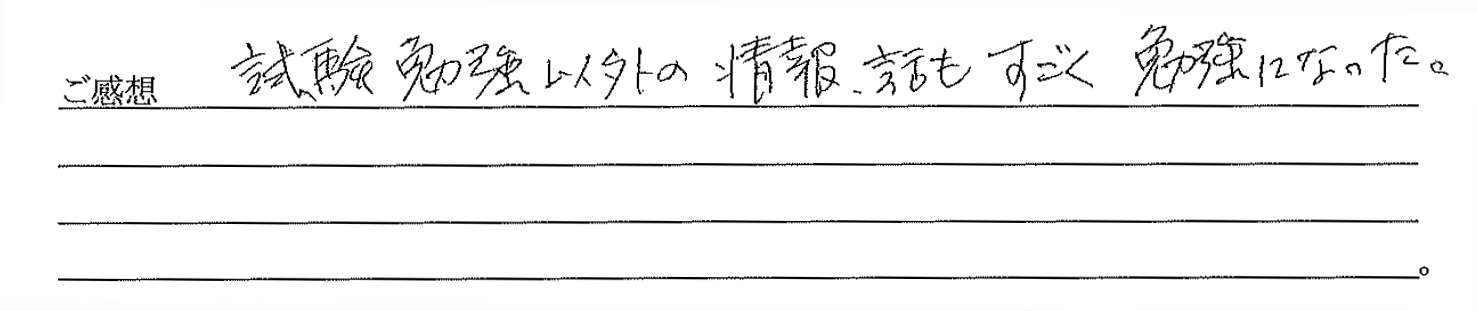 ご感想 試験勉強以外の情報、話もすごく勉強になった。
。